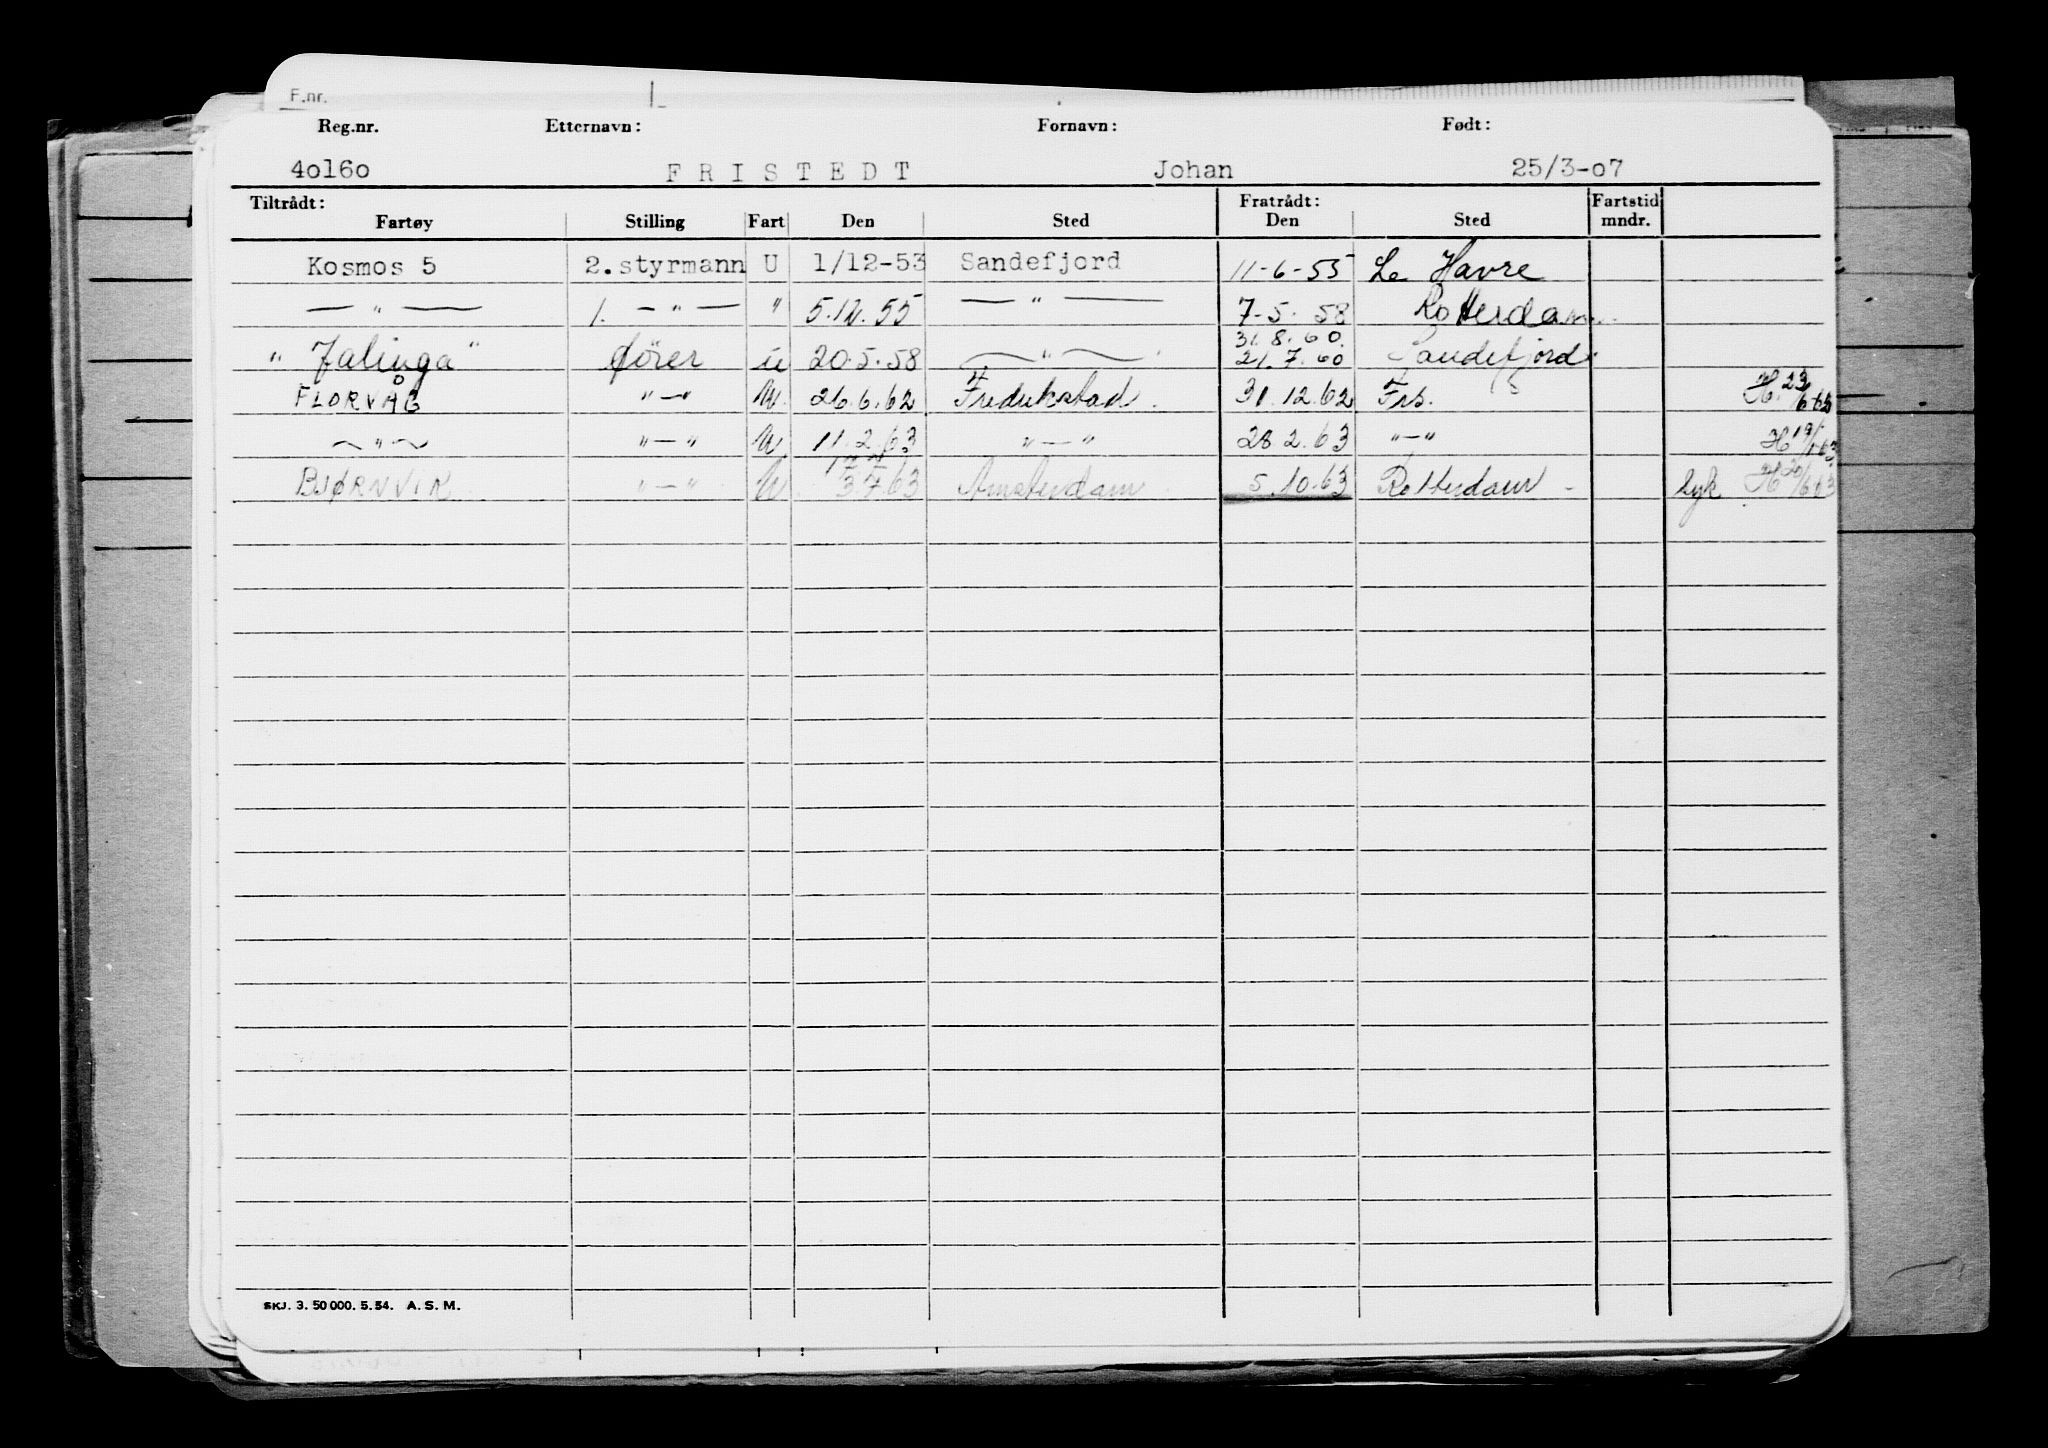 F.nr.
Reg.nr. Etternavn: Fornavn: Født:
4o16o FRISTEDT Johan 25/3-o7
Tiltrådt: Fratrådt: Fartstid
Fartøy Stilling Fart Den Sted Den Sted mndr.
Kosmos 5 2.styrmann U 1/12-53 Sandefjord 11-6-55 Le Havre
— " — 1. — " — " 5.12.55 — " — 7-5-58 Rotterdam
31.8.60.
" Jalinga " fører u 20.5.58 — " — 21.7.60 Sandefjord
FLORVÅG " — " U 26.6.62 Fredrikstad 31.12.62 Frs. H 23/6 62
— " — " — " U 11.2.63 " — " 28.2.63 " — "
BJØRNVIK " — " U 63 Amsterdam 5.10.63 Rotterdam syk
SKJ. 3. 50 000. 5. 54. A. S. M.